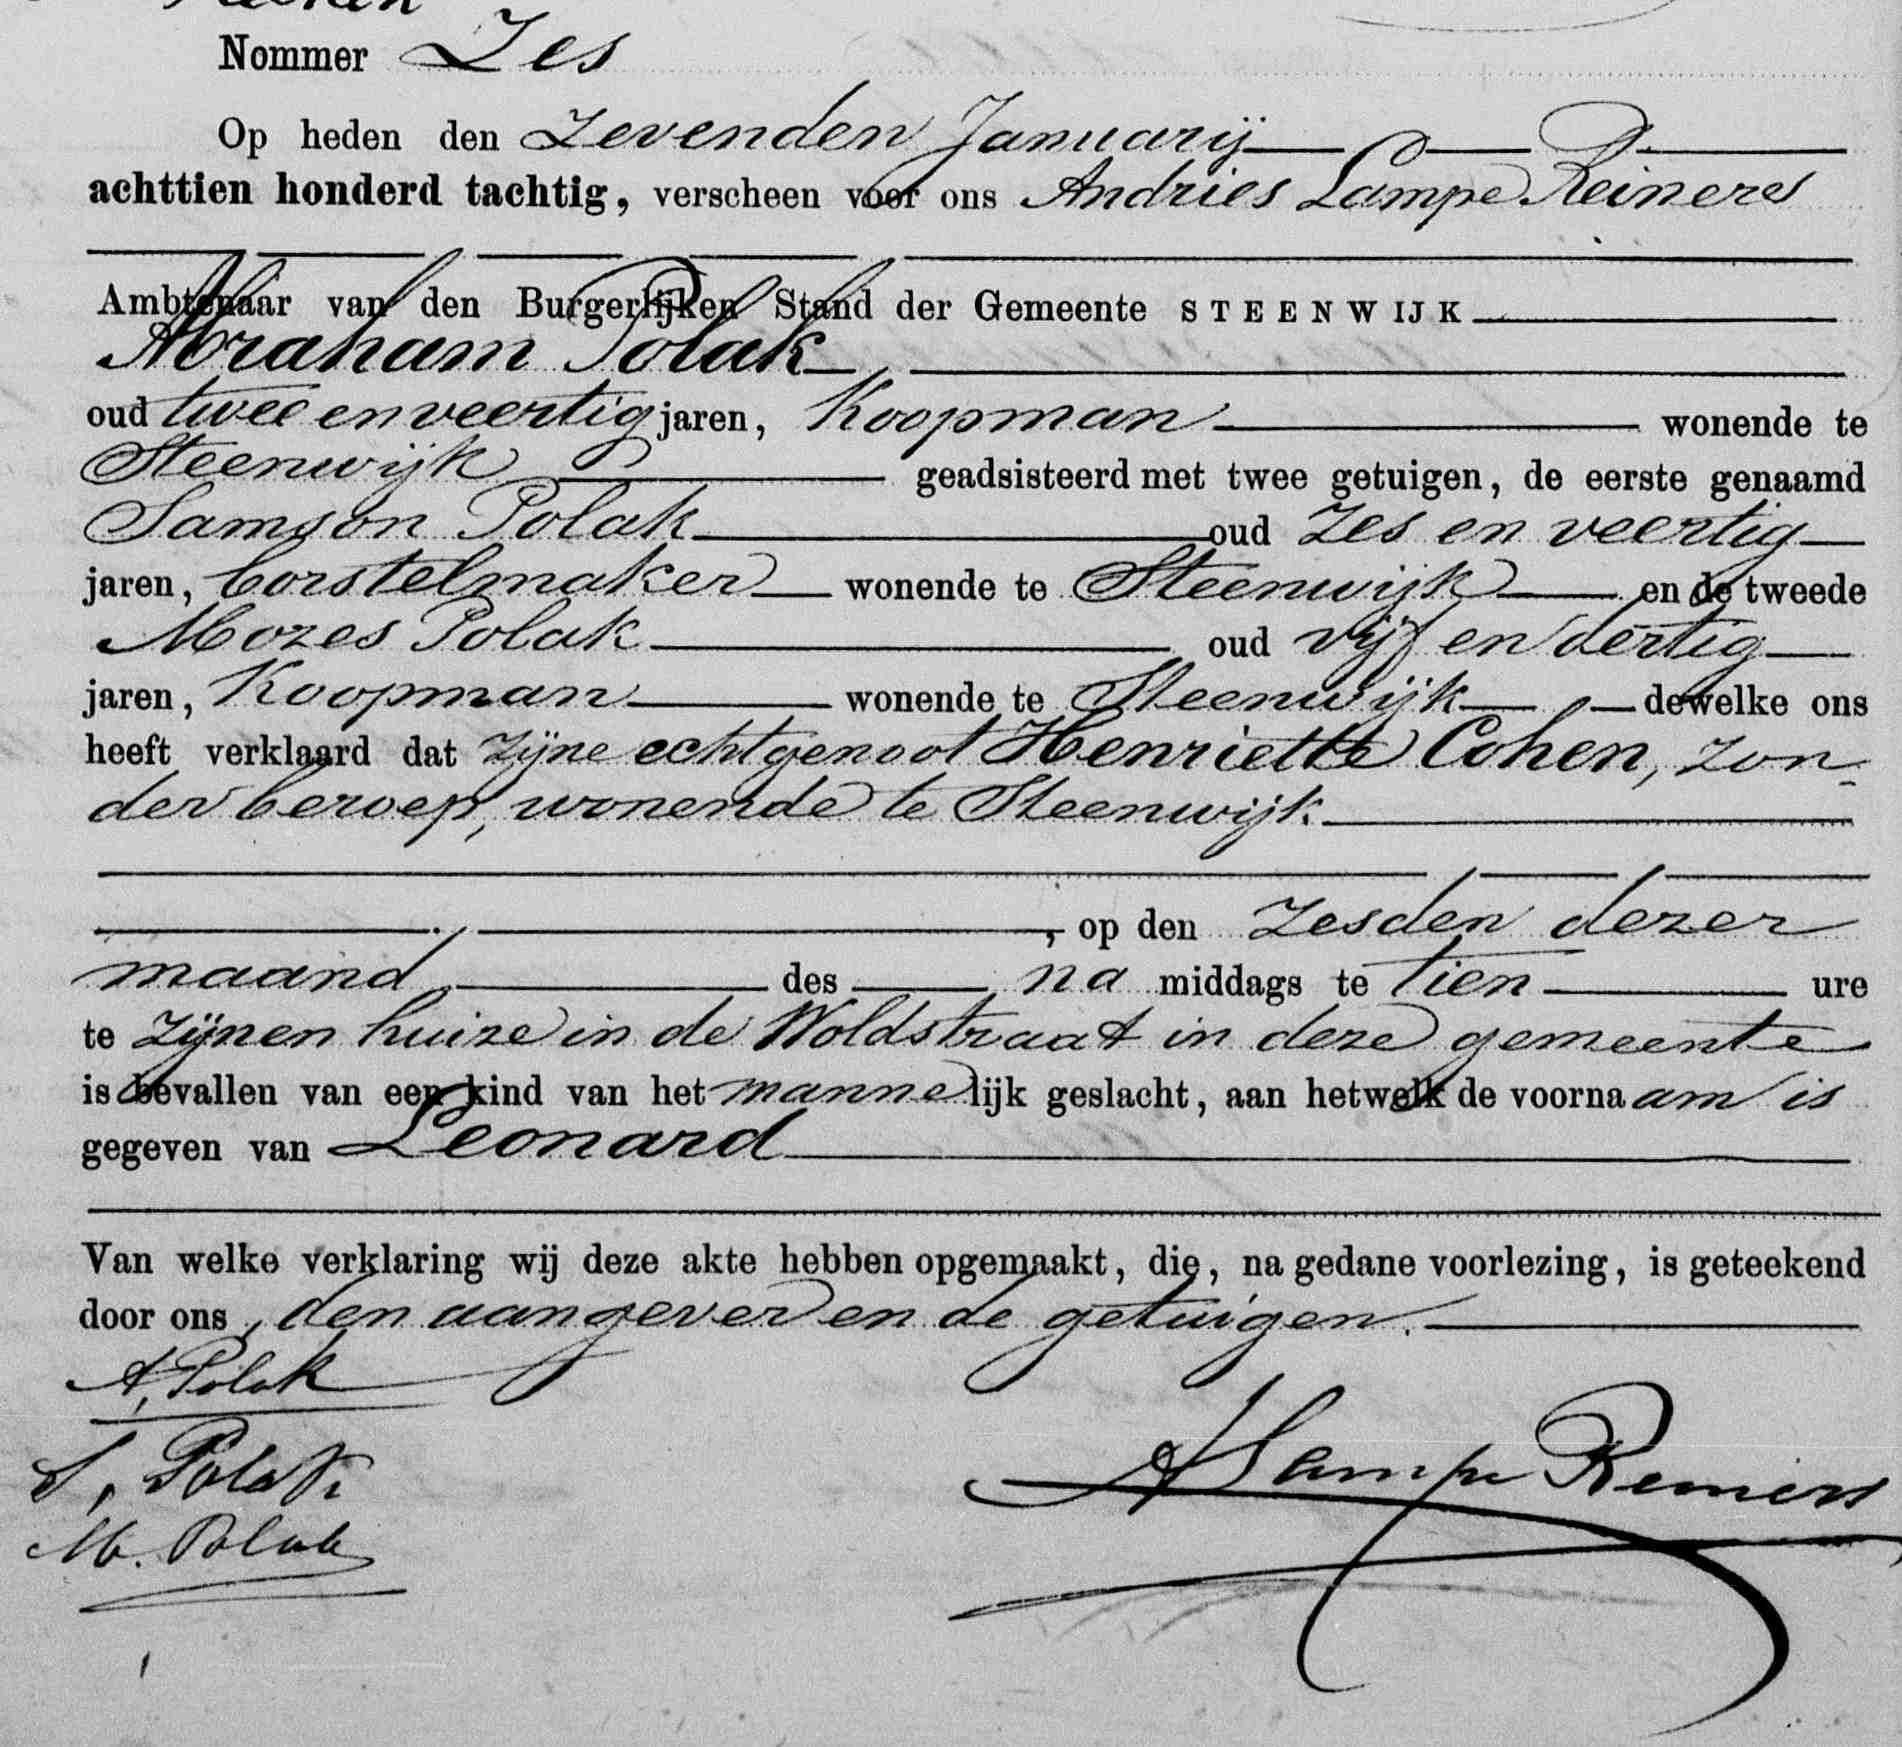 Nommer Zes
Op heden den Zevenden Januarij
achttien honderd tachtig, verscheen voor ons Andries Lampe Reiners
Ambtenaar van den Burgerlijken Stand der Gemeente STEENWIJK
Abraham Polak
oud twee en veertig jaren, Koopman wonende te
Steenwijk geadsisteerd met twee getuigen, de eerste genaamd
Samson Polak oud Zes en veertig
jaren, borstelmaker wonende te Steenwijk en de tweede
Mozes Polak oud vijf en dertig
jaren, Koopman wonende te Steenwijk dewelke ons
heeft verklaard dat zijne echtgenoot Henriette Cohen, zon-
der beroep, wonende te Steenwijk
, op den Zesden dezer
maand des na middags te tien ure
te zijnen huize in de Woldstraat in deze gemeente
is bevallen van een kind van het mannelijk geslacht, aan hetwelk de voornaam is
gegeven van Leonard
Van welke verklaring wij deze akte hebben opgemaakt, die, na gedane voorlezing, is geteekend
door ons, den aangever en de getuigen.
A. Polak
ALampe Reiners
S. Polak
M. Polak